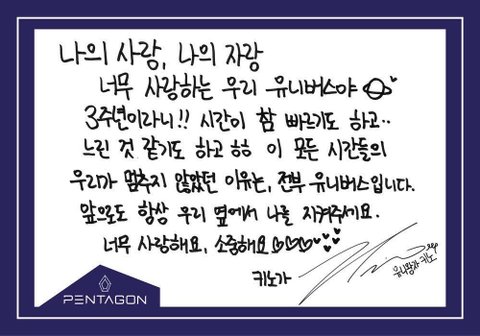 나의 사랑, 나의 자랑
너무 사랑하는 우리 유니버스야
3주년이라니!! 시간이 참 빠르기도 하고..
느린 것 같기도 하고 ㅎㅎ 이 모든 시간들의
우리가 멈추지 않았던 이유는, 전부 유니버스입니다.
앞으로도 항상 우리 옆에서 나를 지켜주세요.
너무 사랑해요, 소중해요
키노가
유니왕자 키노
PENTAGON